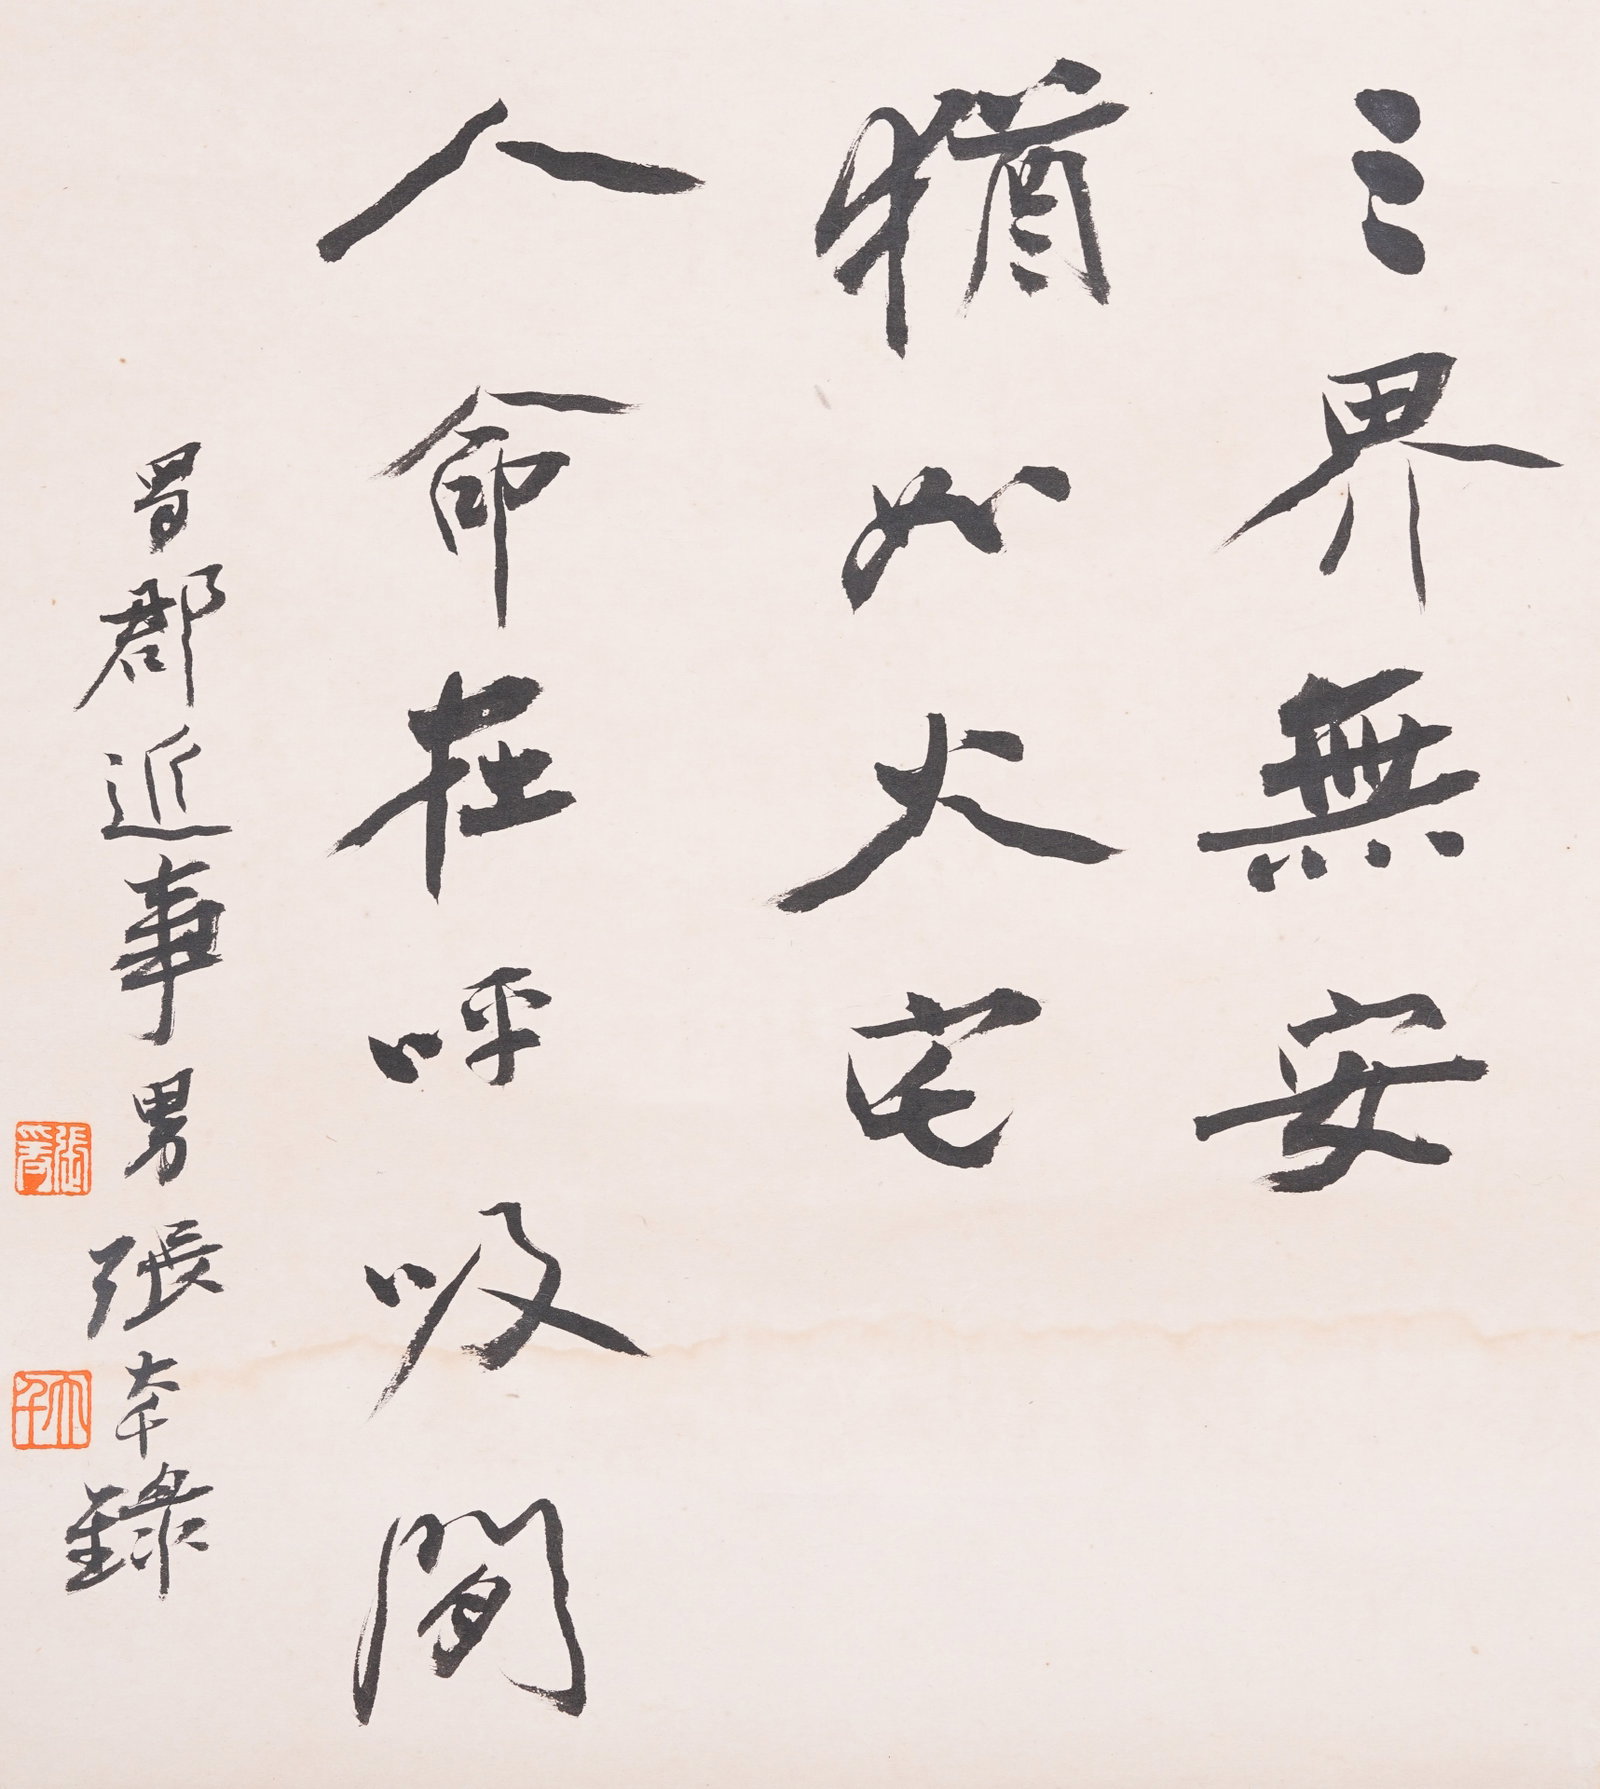 三界無安
猶如火宅
人命在呼吸間
蜀郡近事男張大千錄
張爰
大千